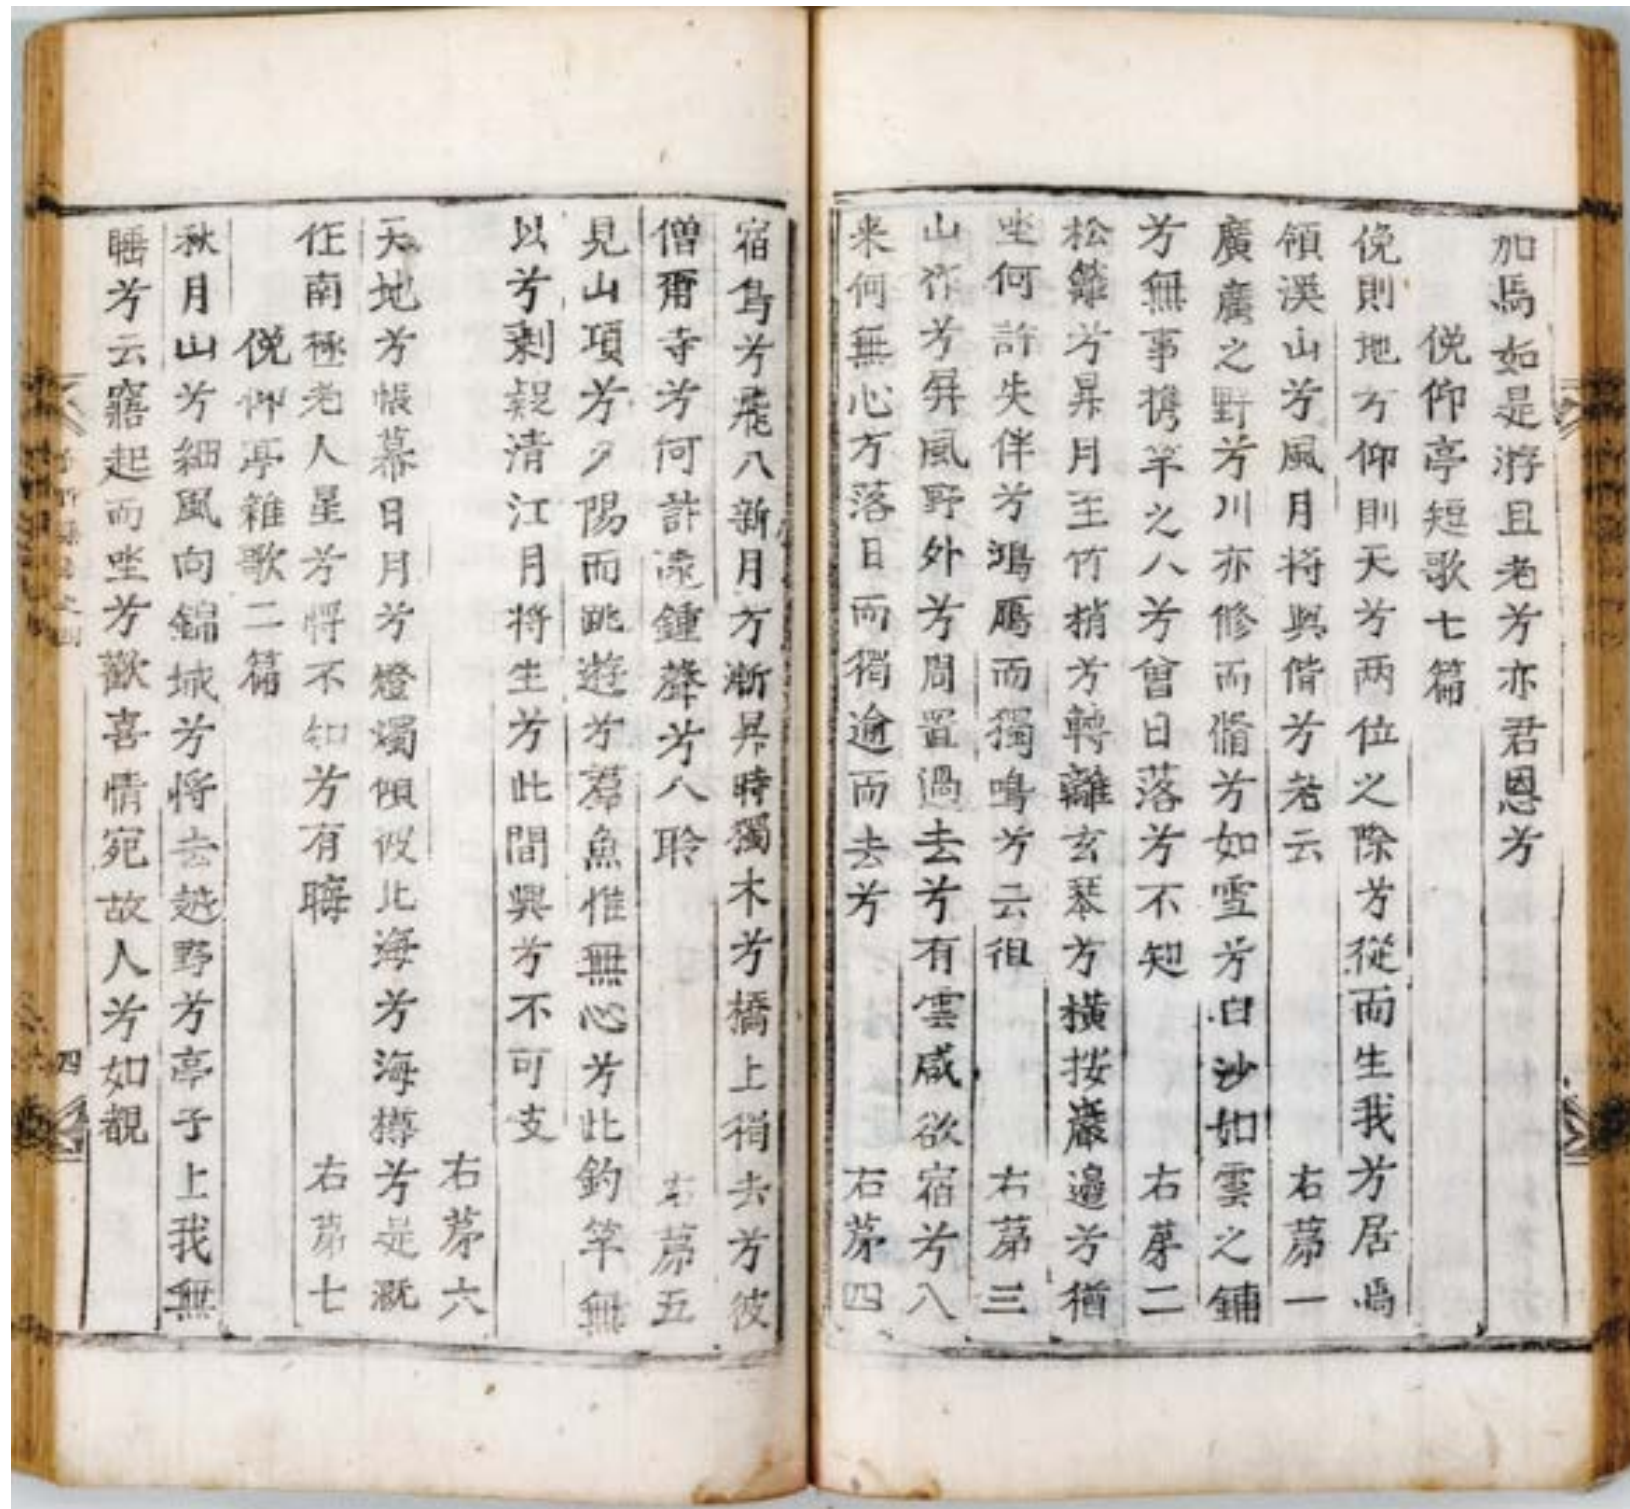 加焉如是游且老兮亦君恩兮
俛仰亭短歌七篇
俛則地方仰則天兮两位之除兮從而生我兮居焉
領溪山兮風月将與偕兮老云 右苐一
廣廣之野兮川亦修而脩兮如雪兮白沙如雲之鋪
兮無事携竿之人兮曾日落兮不知 右苐二
松籬兮昇月至竹梢兮轉離玄琴兮橫按巖邉兮猶
坐何許失伴兮鴻鴈而獨鳴兮云徂 右苐三
山作兮屏風野外兮周置過去兮有雲咸欲宿兮入
来何無心兮落日而獨逾而去兮 右苐四
宿鳥兮飛入新月兮漸昇時獨木兮橋上獨去兮彼
僧爾寺兮何許遠鍾聲兮入聆 右苐五
見山項兮夕陽而跳遊兮羣魚惟無心兮此釣竿無
以兮剩觀清江月将生兮此間興兮不可支
右苐六
天地兮帳幕日月兮燈燭傾彼北海兮海樽兮是溉
任南極老人星兮将不知兮有晦 右苐七
俛仰亭雜歌二篇
秋月山兮細風向錦城兮将去越野兮亭子上我無
睡兮云寤起而坐兮歡喜情宛故人兮如覩
四